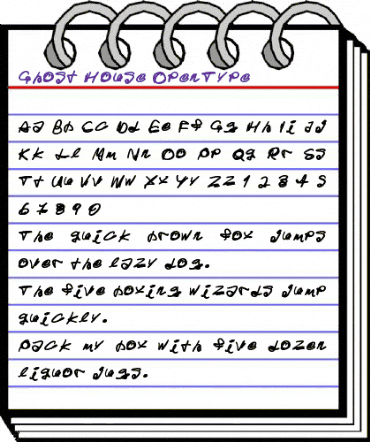 Ghost House OpenType
Aa Bb Cc Dd Ee Ff Gg Hh Ii Jj
Kk Ll Mm Nn Oo Pp Qq Rr Ss
Tt Uu Vv Ww Xx Yy Zz 1 2 3 4 5
6 7 8 9 0
The quick brown fox jumps
over the lazy dog.
The five boxing wizards jump
quickly.
Pack my box with five dozen
liquor jugs.